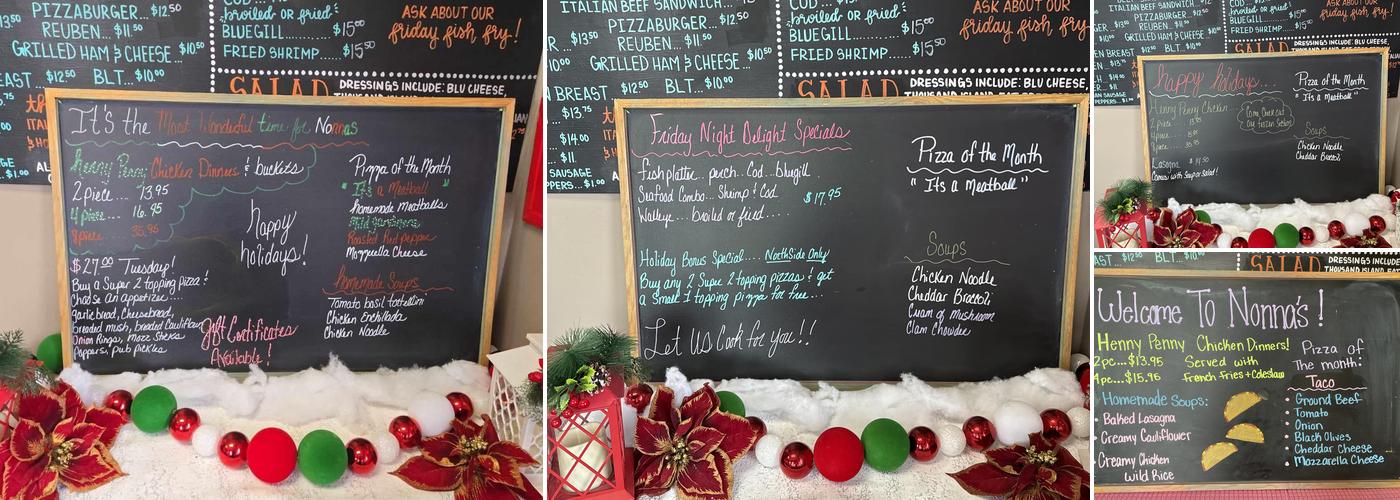 PIZZABURGER... $12.50
REUBEN... $11.50
GRILLED HAM & CHEESE... $10.50
$12.50 BLT... $10.00
COD...
broiled or fried
BLUEGILL... $15.00
FRIED SHRIMP..... $15.50
ASK ABOUT OUR
friday fish fry!
SALAD
DRESSINGS INCLUDE: BLU CHEESE,
It's the Most Wonderful time for Nonnas
Henny Penny Chicken Dinners & buckets
2 piece.... 13.95
4 piece.... 16.95
8 piece.... 35.95
$27.00 Tuesday!
Buy a Super 2 topping Pizza &
Choose an appetizer....
garlic bread, Cheesebread,
breaded mush, breaded Cauliflower
Onion Rings, Mozz Sticks
Poppers, pub pickles
happy
holidays!
Gift Certificates
Available!
Pizza of the Month
"It's a Meatball"
homemade Meatballs
Roasted Red pepper
Mozzerella Cheese
Homemade Soups
Tomato basil tortellini
Chicken Enchilada
Chicken Noodle
ITALIAN BEEF SANDWICH...
PIZZABURGER... $12.50
REUBEN... $11.50
GRILLED HAM & CHEESE... $10.50
$12.50 BLT... $10.00
BREAST
$13.50
$13.75
$14.00
$11
SAUSAGE
PEPPERS... $1.00
COD...
broiled or fried
BLUEGILL... $15.00
FRIED SHRIMP..... $15.50
ASK ABOUT OUR
friday fish fry!
SALAD
DRESSINGS INCLUDE: BLU CHEESE,
THOUSAND ISLAND,
Friday Night Delight Specials
Fish platter... perch.. Cod... bluegill..
Seafood Combo... Shrimp & Cod
$17.95
Walleye... broiled or fried.....
Holiday Bonus Special.... NorthSide Only
Buy any 2 Super 2 topping pizzas & get
a Small 1 topping pizza for free...
Let Us Cook for you!!
Pizza of the Month
"It's a Meatball"
Soups
Chicken Noodle
Cheddar Broccoli
Cream of Mushroom
Clam Chowder
PIZZABURGER... $12.50
REUBEN... $11.50
GRILLED HAM & CHEESE... $10.50
BLT... $10.00
broiled or fried
BLUEGILL...
FRIED SHRIMP...
ASK ABOUT OUR
friday fish fry!
SALAD
DRESSINGS INCLUDE: BLU CHEESE,
happy holidays...
Henny Penny Chicken
2 piece
4 piece
8 piece
Lasagna $14.50
Comes with Soup or Salad!
Come Check out
Our frozen Section!
Pizza of the Month
"It's a Meatball"
Soups
Chicken Noodle
Cheddar Broccoli
SALAD
DRESSINGS INCLUDE
THOUSAND ISLAND,
Welcome To Nonna's!
Henny Penny Chicken Dinners!
2pc...$13.95 Served with
4pc...$15.95 French Fries + Coleslaw
Homemade Soups:
Baked Lasagna
Creamy Cauliflower
Creamy Chicken
Wild Rice
Pizza of
The month:
Taco
Ground Beef
Tomato
Onion
Black Olives
Cheddar Cheese
Mozzarella Cheese